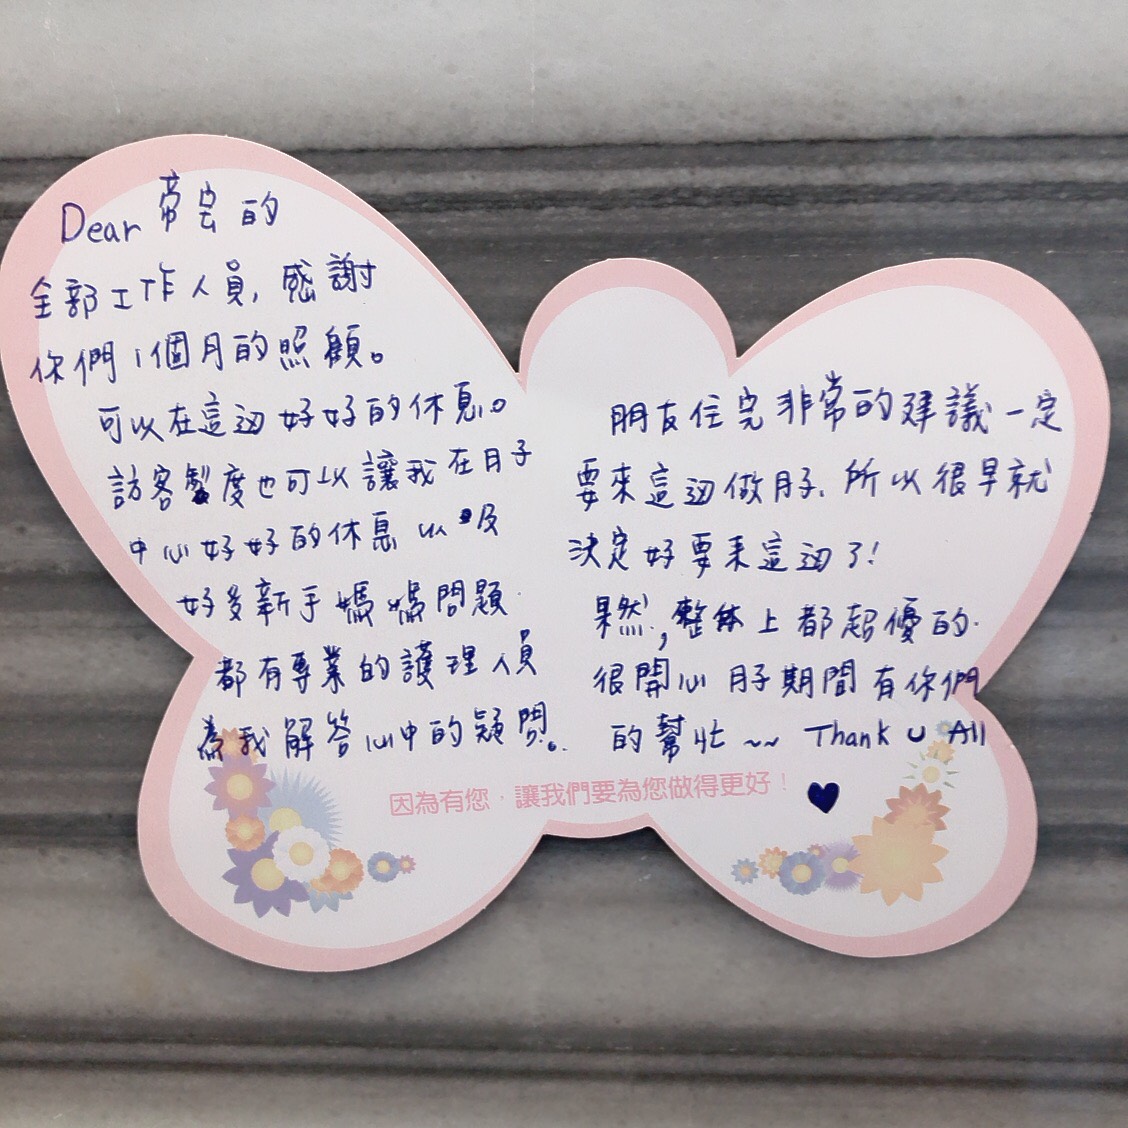 Dear 帝宅的
全部工作人員，感謝
你們1個月的照顧。
可以在這边好好的休息。
訪客製度也可以讓我在月子
中心好好的休息以及
好多新手媽媽問題
都有專業的護理人員
為我解答心中的疑問。
朋友住完非常的建議一定
要來這边做月子.所以很早就
決定好要來這边了!
果然,整体上都超優的.
很開心月子期間有你們
的幫忙~~ Thank U All
因為有您，讓我們要為您做得更好！